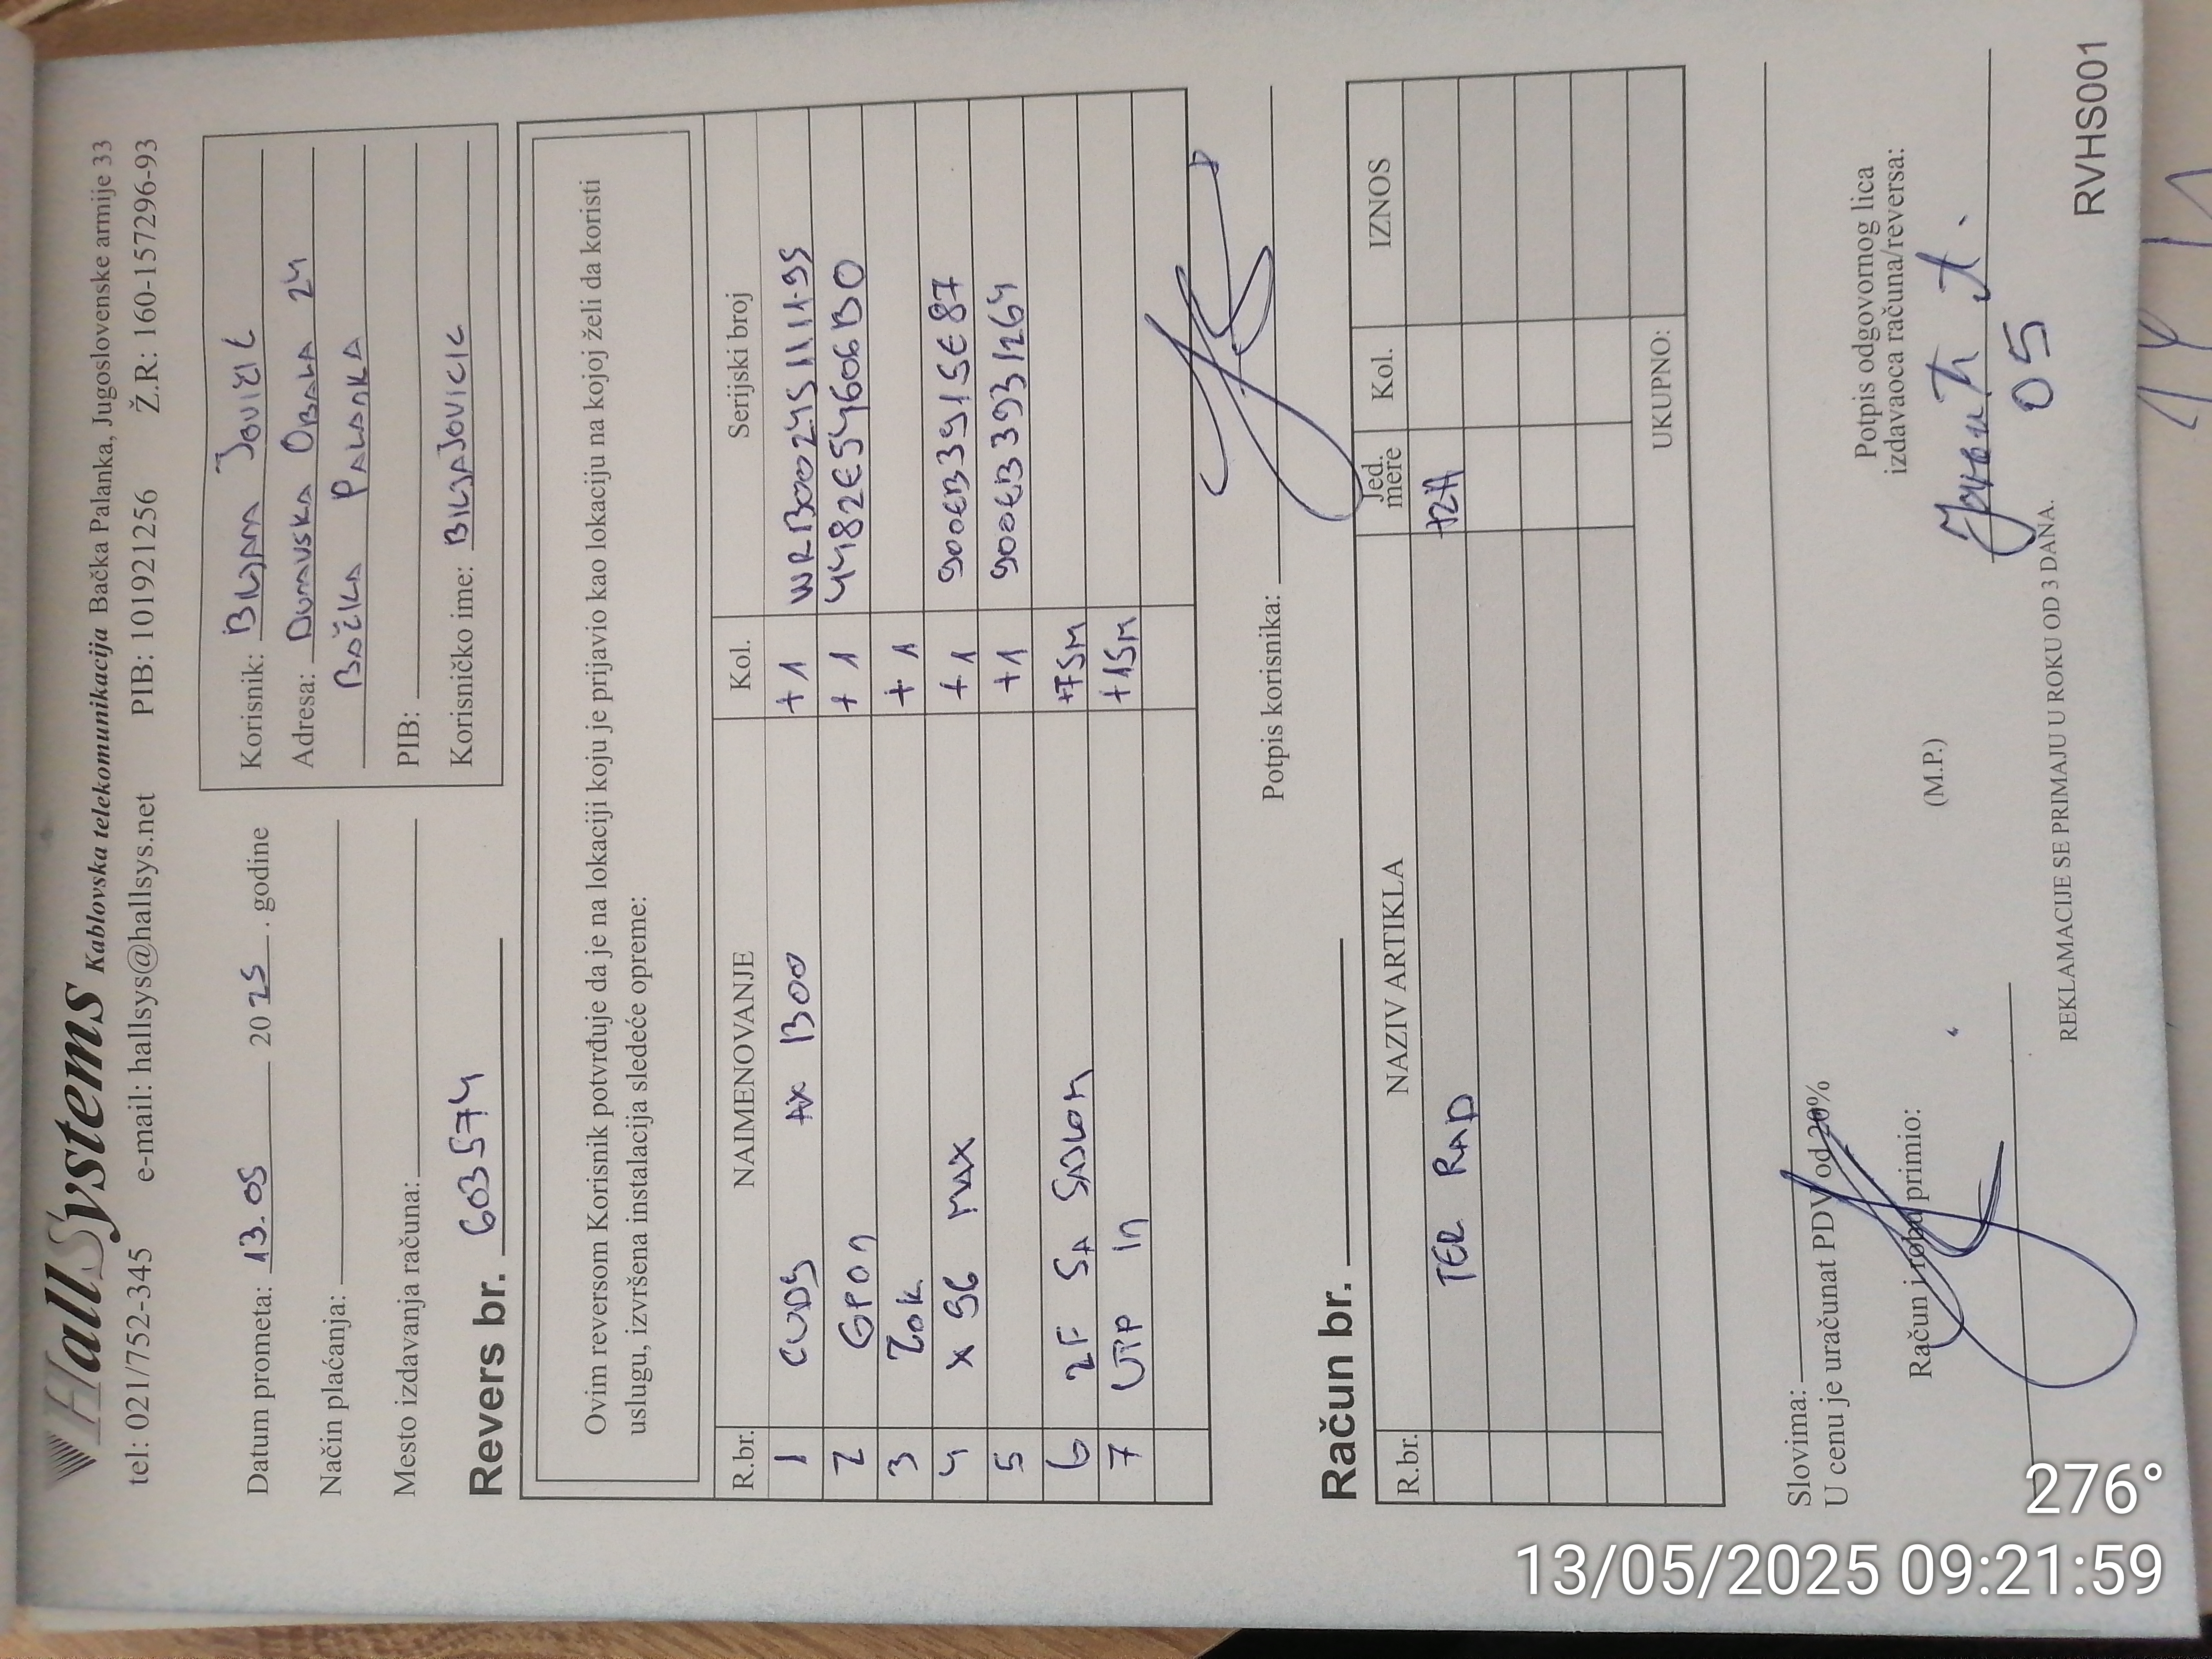 HallSystems Kablovska telekomunikacija Bačka Palanka, Jugoslovenske armije 33
tel: 021/752-345 e-mail: hallsys@hallsys.net PIB: 101921256 Ž.R: 160-157296-93
Datum prometa: 13.05 2025. godine
Način plaćanja:
Mesto izdavanja računa:
Korisnik: BILJANA JOVIČIĆ
Adresa: DUNAVSKA OBALA 24
BAČKA PALANKA
PIB:
Korisničko ime: BILJAJOVICIC
Revers br. 603574
Ovim reversom Korisnik potvrđuje da je na lokaciji koju je prijavio kao lokaciju na kojoj želi da koristi
uslugu, izvršena instalacija sledeće opreme:
R.br. NAIMENOVANJE Kol. Serijski broj
1 CUDY +1
2 GPON +1 4482E54606B0
3 ZOK +1
4 X 96 MAX +1 900EB3915E87
5 +1 900EB3931264
6 2F SA SAJLOM +75M
7 UTP IN +15M
Potpis korisnika:
Račun br.
R.br. NAZIV ARTIKLA Jed. mere Kol. IZNOS
TER RAD
UKUPNO:
Slovima:
U cenu je uračunat PDV od 20%
Račun i robu primio:
(M.P.)
Potpis odgovornog lica
izdavaoca računa/reversa:
05
REKLAMACIJE SE PRIMAJU U ROKU OD 3 DANA.
RVHS001
276°
13/05/2025 09:21:59